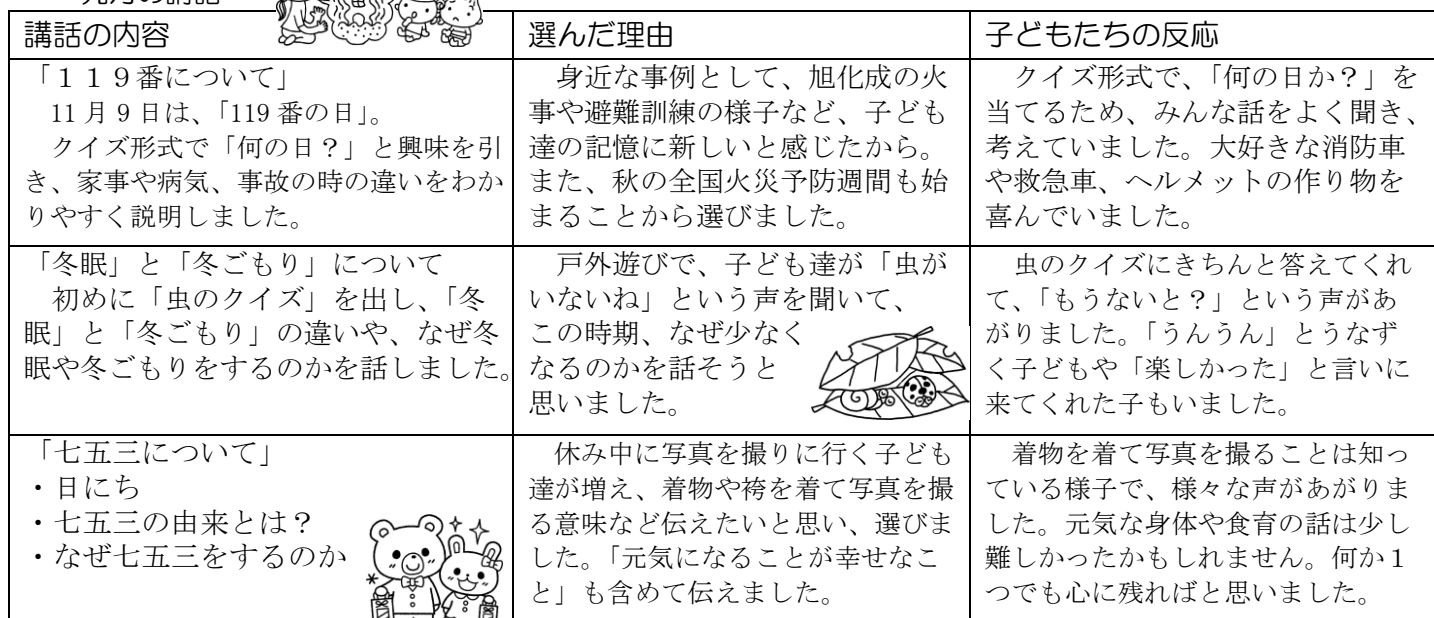 講話の内容
選んだ理由
子どもたちの反応
「119番について」
11月9日は、「119番の日」。
クイズ形式で「何の日?」と興味を引
き、家事や病気、事故の時の違いをわか
りやすく説明しました。
身近な事例として、旭化成の火
事や避難訓練の様子など、子ども
達の記憶に新しいと感じたから。
また、秋の全国火災予防週間も始
まることから選びました。
クイズ形式で、「何の日か?」を
当てるため、みんな話をよく聞き、
考えていました。大好きな消防車
や救急車、ヘルメットの作り物を
喜んでいました。
「冬眠」と「冬ごもり」について
初めに「虫のクイズ」を出し、「冬
眠」と「冬ごもり」の違いや、なぜ冬
眠や冬ごもりをするのかを話しました。
戸外遊びで、子ども達が「虫が
いないね」という声を聞いて、
この時期、なぜ少なく
なるのかを話そうと
思いました。
虫のクイズにきちんと答えてくれ
て、「もうないと?」という声があ
がりました。「うんうん」とうなず
く子どもや「楽しかった」と言いに
来てくれた子もいました。
「七五三について」
・日にち
・七五三の由来とは?
・なぜ七五三をするのか
休み中に写真を撮りに行く子ども
達が増え、着物や袴を着て写真を撮
る意味など伝えたいと思い、選びま
した。「元気になることが幸せなこ
と」も含めて伝えました。
着物を着て写真を撮ることは知っ
ている様子で、様々な声があがりま
した。元気な身体や食育の話は少し
難しかったかもしれません。何か1
つでも心に残ればと思いました。